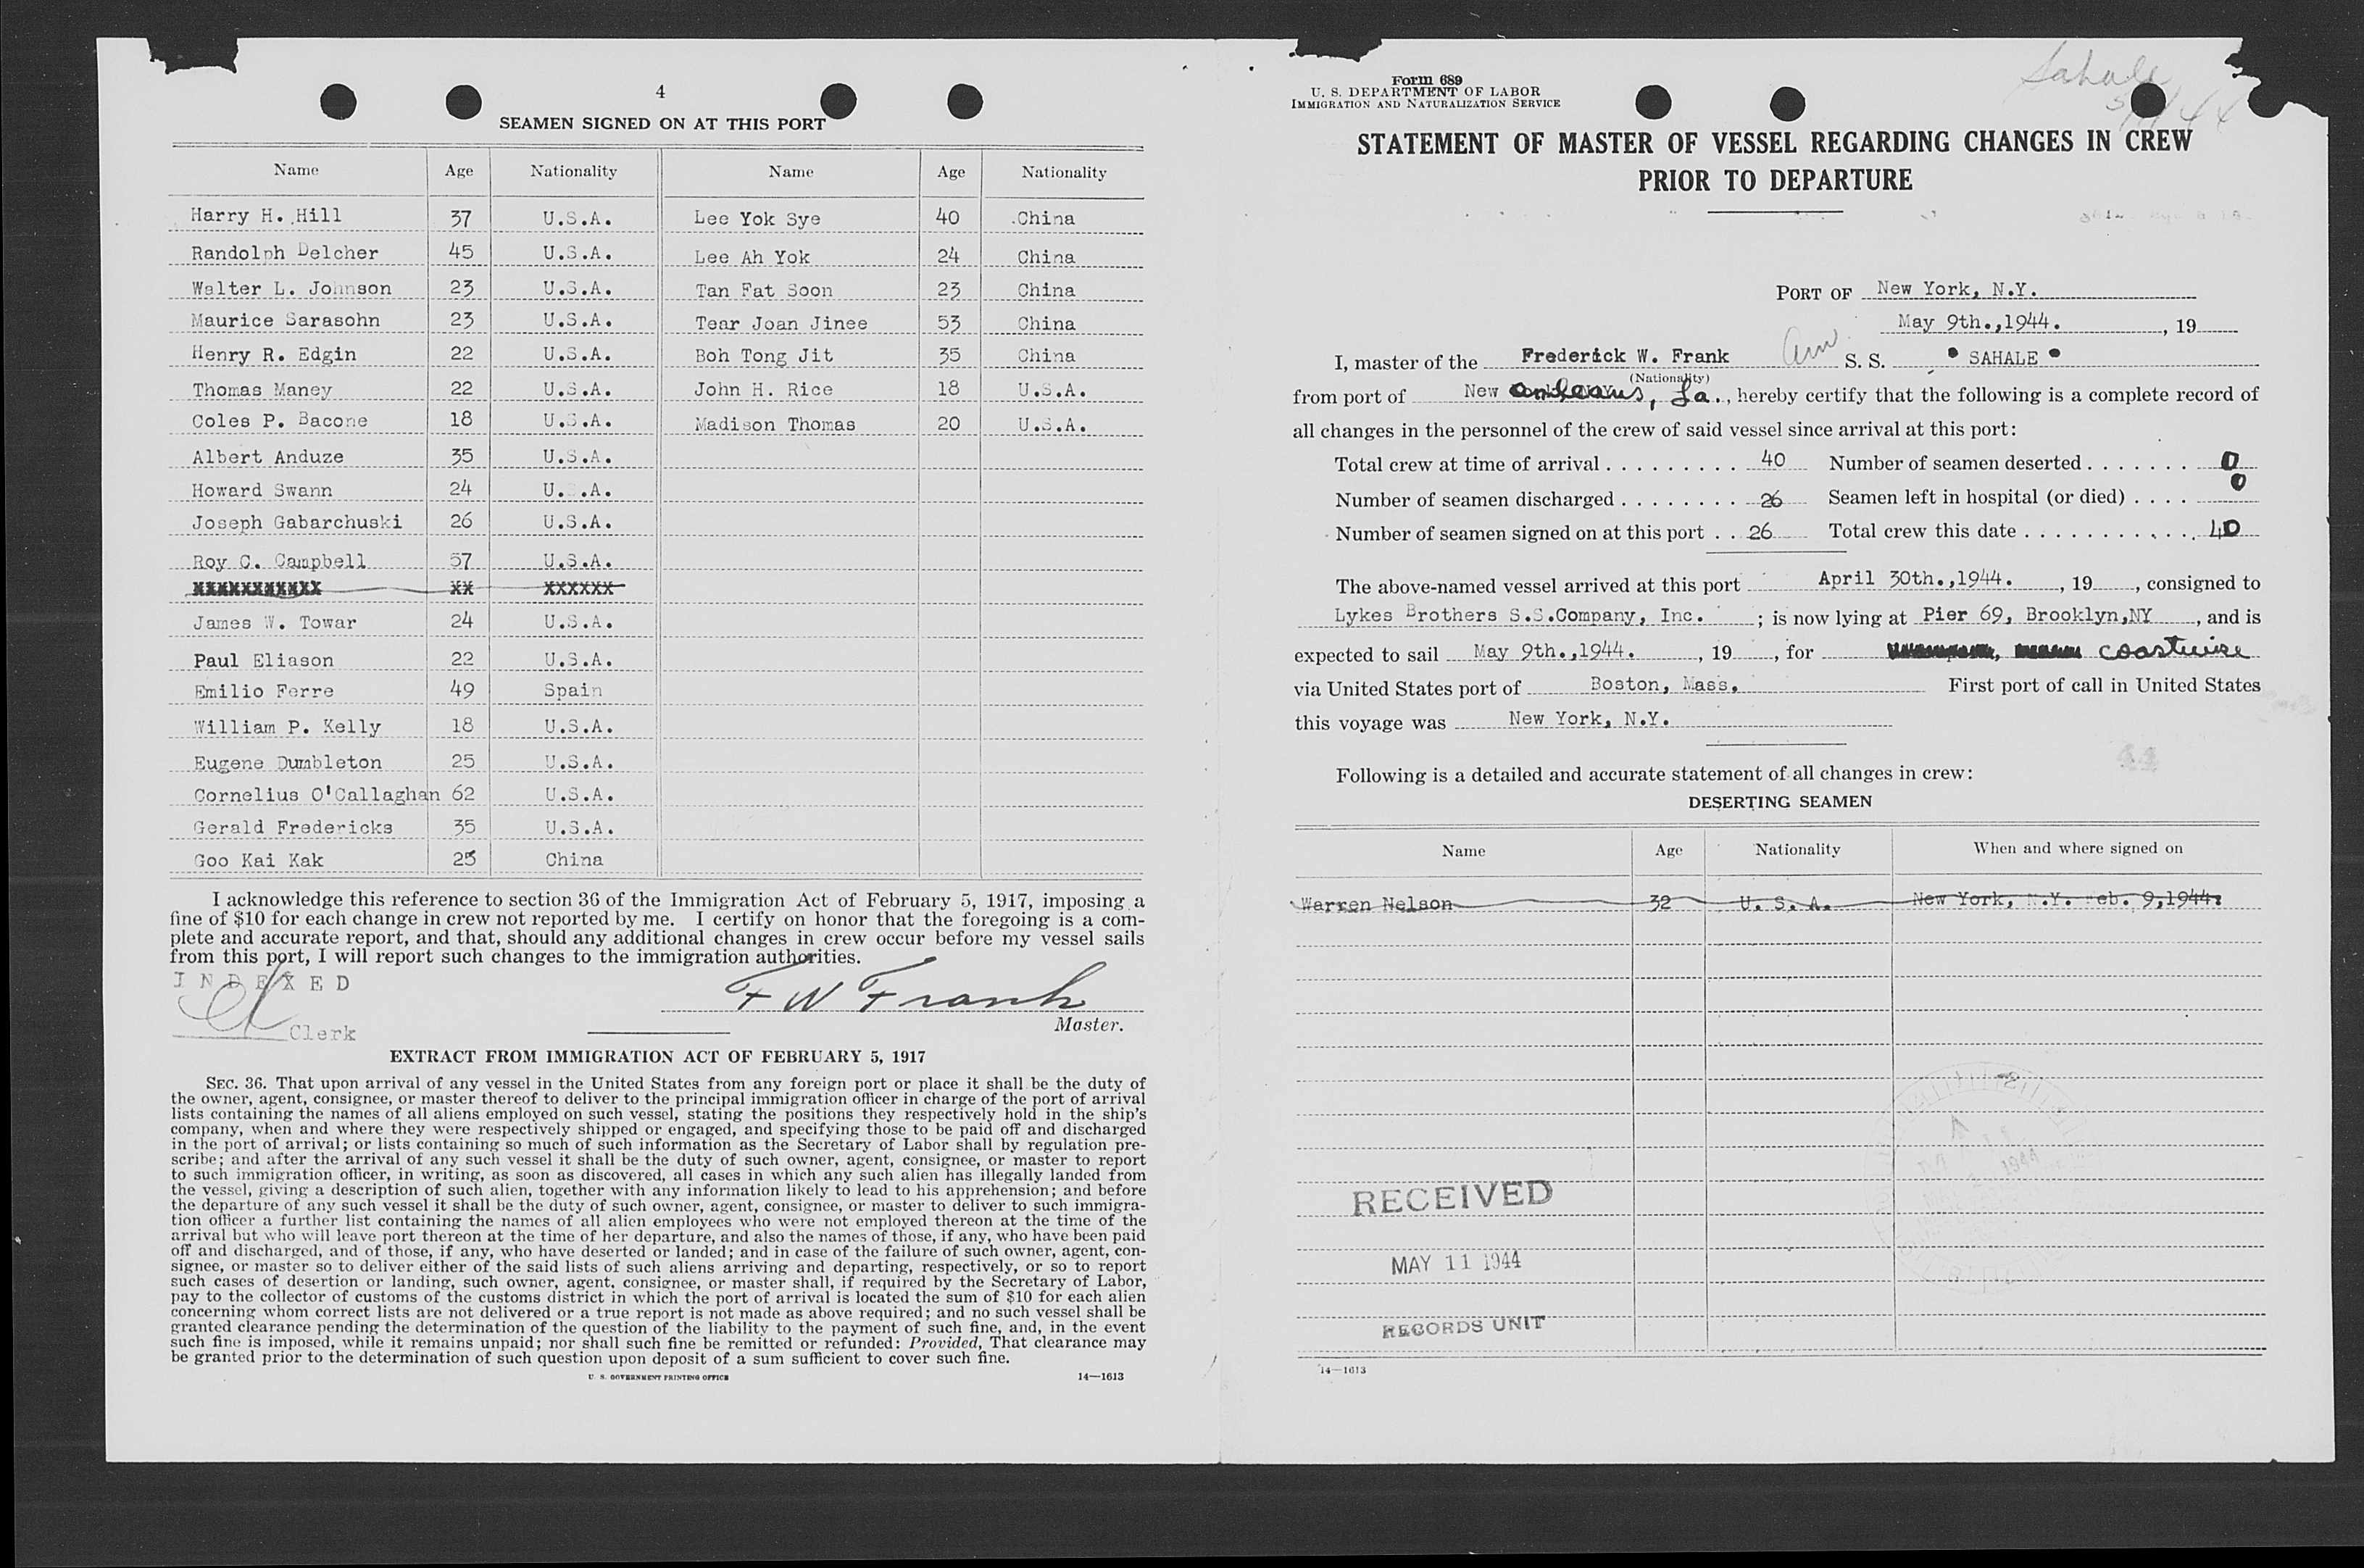 4
SEAMEN SIGNED ON AT THIS PORT
Name Age Nationality Name Age Nationality
Harry H. Hill 37 U.S.A. Lee Yok Sye 40 China
Randolph Delcher 45 U.S.A. Lee Ah Yok 24 China
Walter L. Johnson 23 U.S.A. Tan Fat Soon 23 China
Maurice Sarasohn 23 U.S.A. Tear Joan Jinee 53 China
Henry R. Edgin 22 U.S.A. Boh Tong Jit 35 China
Thomas Maney 22 U.S.A. John H. Rice 18 U.S.A.
Coles P. Bacone 18 U.S.A. Madison Thomas 20 U.S.A.
Albert Anduze 35 U.S.A.
Howard Swann 24 U. .A.
Joseph Gabarchuski 26 U.S.A.
Roy C. Campbell 57 U.S.A.
XXXXXXXXXXX XX XXXXXX
James W. Towar 24 U.S.A.
Paul Eliason 22 U.S.A.
Emilio Ferre 49 Spain
William P. Kelly 18 U.S.A.
Eugene Dumbleton 25 U.S.A.
Cornelius O'Callaghan 62 U.S.A.
Gerald Fredericks 35 U.S.A.
Goo Kai Kak 25 China
I acknowledge this reference to section 36 of the Immigration Act of February 5, 1917, imposing a
fine of $10 for each change in crew not reported by me. I certify on honor that the foregoing is a com-
plete and accurate report, and that, should any additional changes in crew occur before my vessel sails
from this port, I will report such changes to the immigration authorities.
INDEXED
F W Frank
Clerk
Master.
EXTRACT FROM IMMIGRATION ACT OF FEBRUARY 5, 1917
SEC. 36. That upon arrival of any vessel in the United States from any foreign port or place it shall be the duty of
the owner, agent, consignee, or master thereof to deliver to the principal immigration officer in charge of the port of arrival
lists containing the names of all aliens employed on such vessel, stating the positions they respectively hold in the ship's
company, when and where they were respectively shipped or engaged, and specifying those to be paid off and discharged
in the port of arrival; or lists containing so much of such information as the Secretary of Labor shall by regulation pre-
scribe; and after the arrival of any such vessel it shall be the duty of such owner, agent, consignee, or master to report
to such immigration officer, in writing, as soon as discovered, all cases in which any such alien has illegally landed from
the vessel, giving a description of such alien, together with any information likely to lead to his apprehension; and before
the departure of any such vessel it shall be the duty of such owner, agent, consignee, or master to deliver to such immigra-
tion officer a further list containing the names of all alien employees who were not employed thereon at the time of the
arrival but who will leave port thereon at the time of her departure, and also the names of those, if any, who have been paid
off and discharged, and of those, if any, who have deserted or landed; and in case of the failure of such owner, agent, con-
signee, or master so to deliver either of the said lists of such aliens arriving and departing, respectively, or so to report
such cases of desertion or landing, such owner, agent, consignee, or master shall, if required by the Secretary of Labor,
pay to the collector of customs of the customs district in which the port of arrival is located the sum of $10 for each alien
concerning whom correct lists are not delivered or a true report is not made as above required; and no such vessel shall be
granted clearance pending the determination of the question of the liability to the payment of such fine, and, in the event
such fine is imposed, while it remains unpaid; nor shall such fine be remitted or refunded: Provided, That clearance may
be granted prior to the determination of such question upon deposit of a sum sufficient to cover such fine.
U. S. GOVERNMENT PRINTING OFFICE 14—1613
Sahale
Form 689
U. S. DEPARTMENT OF LABOR
IMMIGRATION AND NATURALIZATION SERVICE
STATEMENT OF MASTER OF VESSEL REGARDING CHANGES IN CREW
PRIOR TO DEPARTURE
PORT OF New York, N.Y.
May 9th.,1944. , 19
I, master of the Frederick W. Frank Am S. S. " SAHALE "
(Nationality)
from port of New Orleans, La., hereby certify that the following is a complete record of
all changes in the personnel of the crew of said vessel since arrival at this port:
Total crew at time of arrival 40 Number of seamen deserted 0
Number of seamen discharged 26 Seamen left in hospital (or died) 0
Number of seamen signed on at this port 26 Total crew this date 40
The above-named vessel arrived at this port April 30th.,1944. , 19 , consigned to
Lykes Brothers S.S.Company, Inc. ; is now lying at Pier 69, Brooklyn,NY , and is
expected to sail May 9th.,1944. , 19 , for coastwise
via United States port of Boston, Mass. First port of call in United States
this voyage was New York, N.Y.
Following is a detailed and accurate statement of all changes in crew:
DESERTING SEAMEN
Name Age Nationality When and where signed on
Warren Nelson 32 U. S. A. New York, N.Y. Feb. 9,1944.
RECEIVED
MAY 11 1944
RECORDS UNIT
14—1613